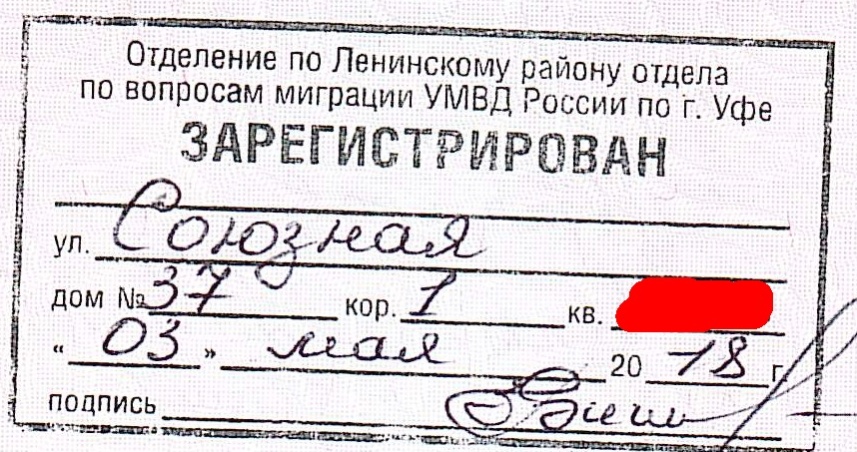 Отделение по Ленинскому району отдела
по вопросам миграции УМВД России по г. Уфе
ЗАРЕГИСТРИРОВАН
ул. Союзная
дом № 37 кор. 1 кв.
" 03 " мая 20 18 г.
подпись